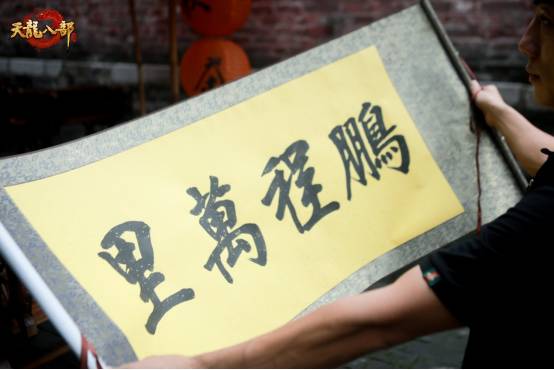 天龍八部
鵬程萬里